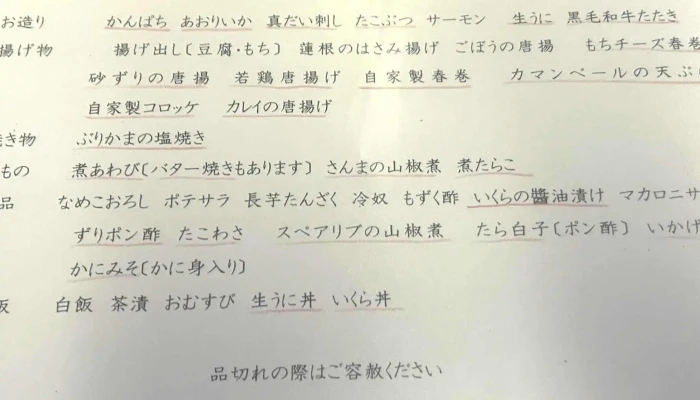 お造り かんぱち あおりいか 真だい刺し たこぶつ サーモン 生うに 黒毛和牛たたき
揚げ物 揚げ出し〔豆腐・もち〕 蓮根のはさみ揚げ ごぼうの唐揚 もちチーズ春巻
砂ずりの唐揚 若鶏唐揚げ 自家製春巻 カマンベールの天ぷ
自家製コロッケ カレイの唐揚げ
き物 ぶりかまの塩焼き
もの 煮あわび〔バター焼きもあります〕 さんまの山椒煮 煮たらこ
品 なめこおろし ポテサラ 長芋たんざく 冷奴 もずく酢 いくらの醬油漬け マカロニサ
ずりポン酢 たこわさ スペアリブの山椒煮 たら白子〔ポン酢〕 いかげ
かにみそ〔かに身入り〕
飯 白飯 茶漬 おむすび 生うに丼 いくら丼
品切れの際はご容赦ください